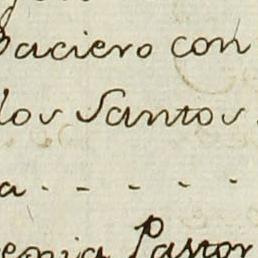 Baciero con
los Santos
a - - - - -
enia Pastor